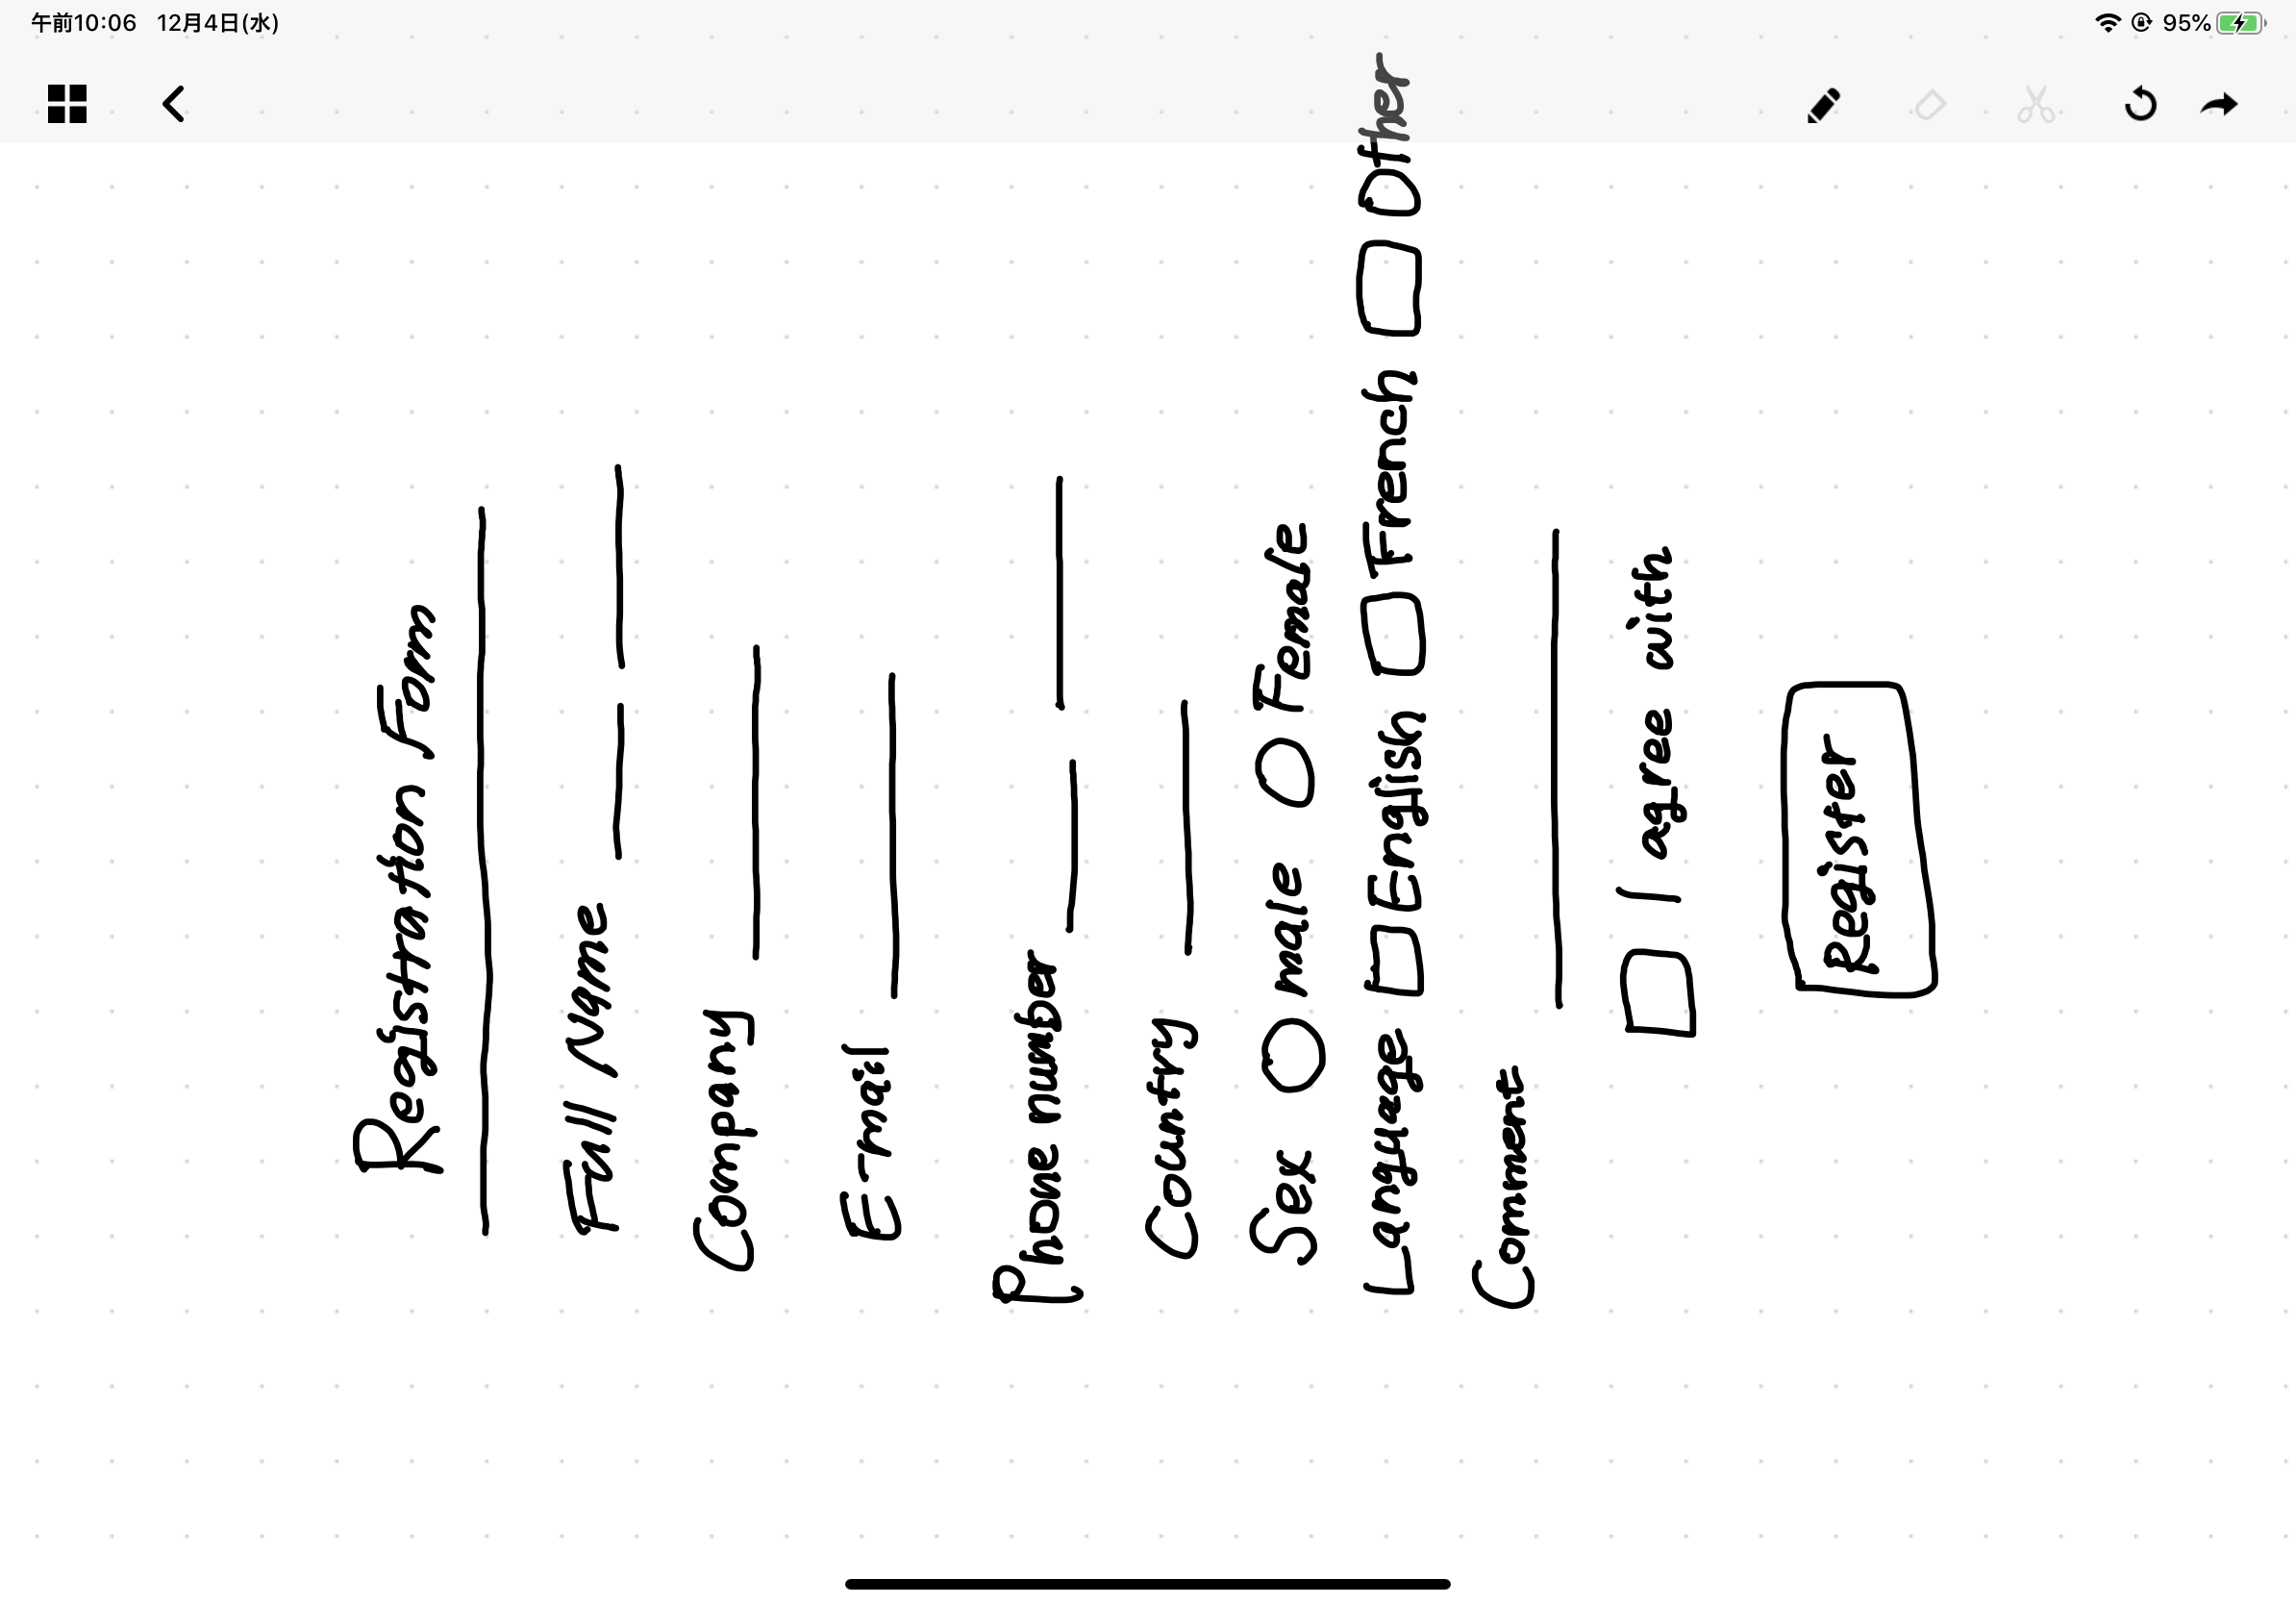 午前10:06 12月4日(水)
95%
Registration Form
Full Name
Company
Email
Phone number
Country
Sex male Female
Language English French Other
Comment
I agree with
Register